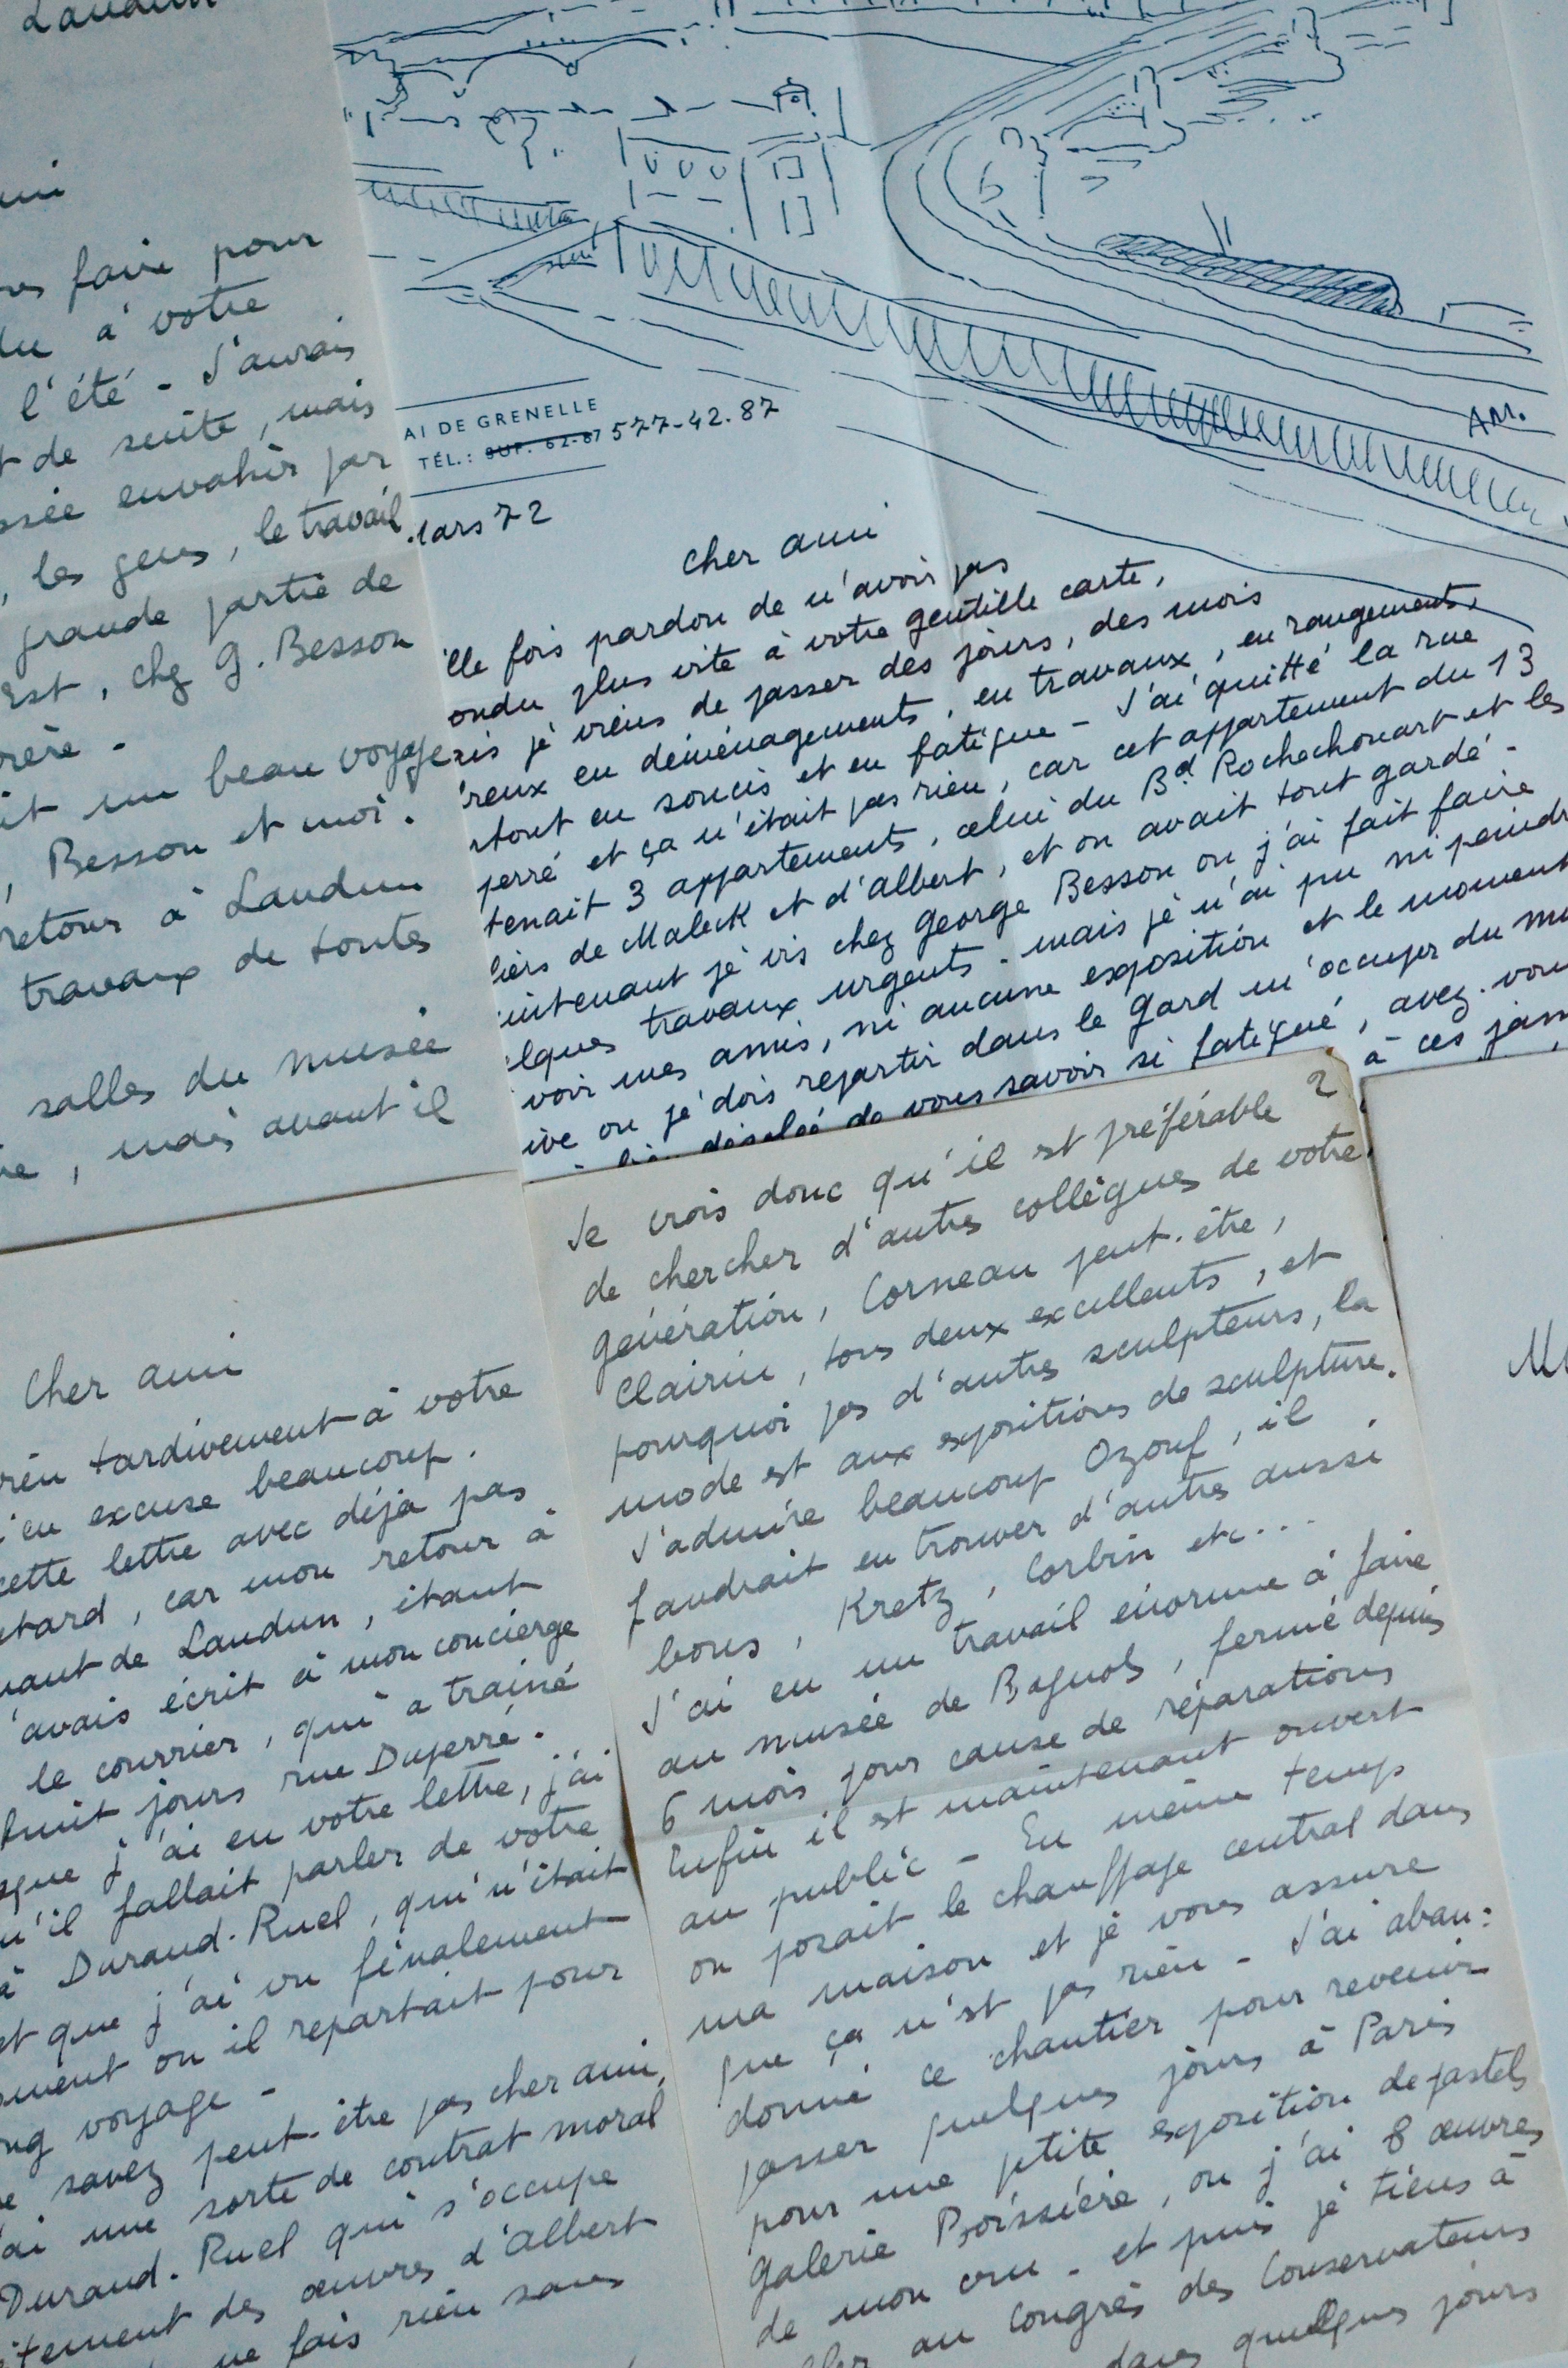 Laudun
faire pour
à votre
l'été - J'aurais
de suite, mais
envahir par
les gens, le travail
grande partie de
Est, chez G. Besson
un beau voyage
, Besson et moi.
retour à Laudun
travaux de toutes
salles du musée
, mais avant il
AI DE GRENELLE
TÉL.: SUF. 62-87 577-42.87
ars 72
A M.
cher ami
lle fois pardon de n'avoir pas
ondu plus vite à votre gentille carte,
is je viens de passer des jours, des mois
reux en déménagements, en travaux, en rangements,
tout en soucis et en fatigue - J'ai quitté la rue
perré et ça n'était pas rien, car cet appartement du 13
tenait 3 appartements, celui du Bd Rochechouart et les
liers de Maleck et d'Albert, et on avait tout gardé -
intenant je vis chez George Besson ou j'ai fait faire
elques travaux urgents - mais je n'ai pu ni peindr
voir mes amis, ni aucune exposition et le moment
ive ou je dois repartir dans le Gard m'occuper du mu
désolée de vous savoir si fatigué, avez-vou
à ces jam
Cher ami
rien tardivement à votre
en excuse beaucoup.
cette lettre avec déjà pas
etard, car mon retour à
nant de Laudun, étant
avais écrit à mon concierge
le courrier, qui a trainé
huit jours rue Duperré.
sque j'ai eu votre lettre, j'ai
qu'il fallait parler de votre
à Durand-Ruel, qui n'était
et que j'ai vu finalement
ment ou il repartait pour
ng voyage -
savez peut-être pas cher ami,
ai une sorte de contrat moral
Durand-Ruel qui s'occupe
itement des œuvres d'Albert
ne fais rien sans
2
Je crois donc qu'il est préférable
de chercher d'autres collègues de votre
génération, Corneau peut-être,
Clairin, tous deux excellents, et
pourquoi pas d'autres sculpteurs, la
mode est aux expositions de sculpture.
J'admire beaucoup Ozouf, il
faudrait en trouver d'autres aussi
bons, Kretz, Corbin etc...
J'ai eu un travail énorme à faire
au musée de Bagnols, fermé depuis
6 mois pour cause de réparations
Enfin il est maintenant ouvert
au public - En même temps
on posait le chauffage central dans
ma maison et je vous assure
que ça n'est pas rien - J'ai aban:
donné ce chantier pour revenir
passer quelques jours à Paris
pour une petite exposition de pastels
Galerie Boissière, ou j'ai 8 œuvres
de mon cru - et puis je tiens à
ller au Congrès des Conservateurs
dans quelques jours